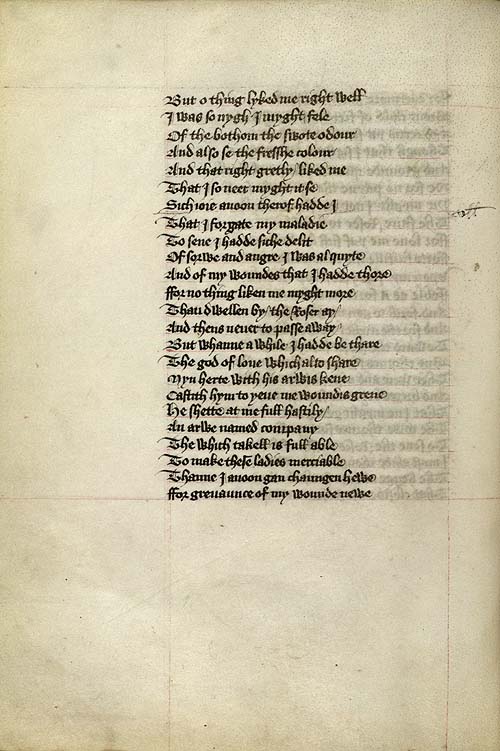 But o thing lyked me right well
I was so nygh I myght fele
Of the bothom the swote odour
And also se the fresshe colour
And that right gretly liked me
That I so neer myght it se
Sich ioie anoon therof hadde I
That I forgate my maladie
To sene I hadde siche delit
Of sorwe and angre I was al quyte
And of my woundes that I hadde thore
ffor no thing liken me myght more
Than dwellen by the Roser ay
And thens neuer to passe away
But whanne a while I hadde be thare
The god of loue which al to share
Myn herte with his arwis kene
Castith hym to yeue me woundis grene
He shette at me full hastily
An arwe named company
The which takell is full able
To make these ladies merciable
Thanne I anoon gan chaungen hewe
ffor greuaunce of my wounde newe